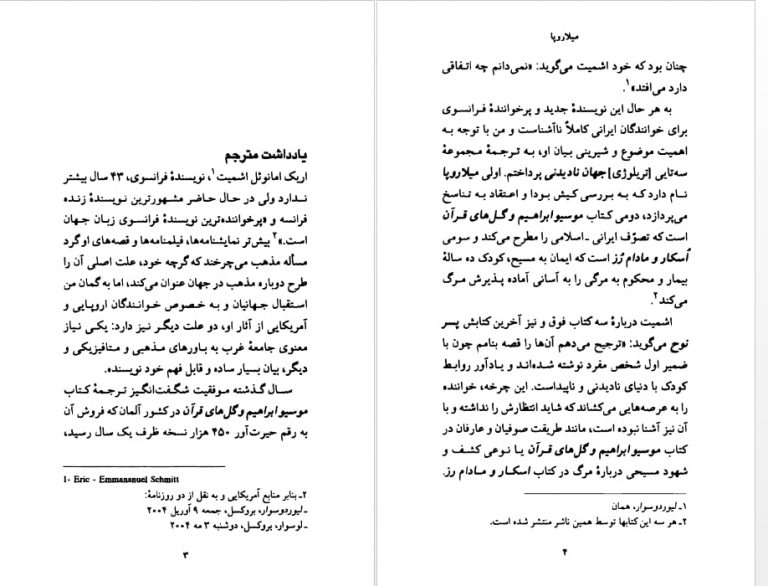 یادداشت مترجم
اریک امانوئل اشمیت۱، نویسندهٔ فرانسوی، ۴۳ سال بیشتر
ندارد ولی در حال حاضر مشهورترین نویسندهٔ زنده
فرانسه و «پرخواننده‌ترین نویسندهٔ فرانسوی زبان جهان
است.»۲ بیش‌تر نمایشنامه‌ها، فیلمنامه‌ها و قصه‌های او گرد
مسأله مذهب می‌چرخند که گرچه خود، علت اصلی آن را
طرح دوباره مذهب در جهان عنوان می‌کند، اما به گمان من
استقبال جهانیان و به خصوص خوانندگان اروپایی و
آمریکایی از آثار او، دو علت دیگر نیز دارد: یکی نیاز
معنوی جامعهٔ غرب به باورهای مذهبی و متافیزیکی و
دیگر، بیان بسیار ساده و قابل فهم خود نویسنده.
سال گذشته موفقیت شگفت‌انگیز ترجمهٔ کتاب
موسیو ابراهیم و گل‌های قرآن در کشور آلمان که فروش آن
به رقم حیرت‌آور ۴۵۰ هزار نسخه ظرف یک سال رسید،
1- Eric - Emmananuel Schmitt
۲ـ بنابر منابع آمریکایی و به نقل از دو روزنامهٔ:
ـ لیوردوسوار، بروکسل، جمعه ۹ آوریل ۲۰۰۴
ـ لوسوار، بروکسل، دوشنبه ۳ مه ۲۰۰۴
۳
میلارویا
چنان بود که خود اشمیت می‌گوید: «نمی‌دانم چه اتفاقی
دارد می‌افتد»۱.
به هر حال این نویسندهٔ جدید و پرخوانندهٔ فرانسوی
برای خوانندگان ایرانی کاملاً ناآشناست و من با توجه به
اهمیت موضوع و شیرینی بیان او، به ترجمهٔ مجموعهٔ
سه‌تایی [تریلوژی] جهان نادیدنی پرداختم. اولی میلارویا
نام دارد که به بررسی کیش بودا و اعتقاد به تناسخ
می‌پردازد، دومی کتاب موسیو ابراهیم و گل‌های قرآن
است که تصوّف ایرانی ـ اسلامی را مطرح می‌کند و سومی
اُسکار و مادام رُز است که ایمان به مسیح، کودک ده سالهٔ
بیمار و محکوم به مرگی را به آسانی آماده پذیرش مرگ
می‌کند۲.
اشمیت دربارهٔ سه کتاب فوق و نیز آخرین کتابش پسر
نوح می‌گوید: «ترجیح می‌دهم آن‌ها را قصه بنامم چون با
ضمیر اول شخص مفرد نوشته شده‌اند و یادآور روابط
کودک با دنیای نادیدنی و ناپیداست. این چرخه، خواننده
را به عرصه‌هایی می‌کشاند که شاید انتظارش را نداشته و با
آن نیز آشنا نبوده است، مانند طریقت صوفیان و عارفان در
کتاب موسیو ابراهیم و گل‌های قرآن یا نوعی کشف و
شهود مسیحی دربارهٔ مرگ در کتاب اسکار و مادام رز.
۱ـ لیوردوسوار، همان
۲ـ هر سه این کتابها توسط همین ناشر منتشر شده است.
۴